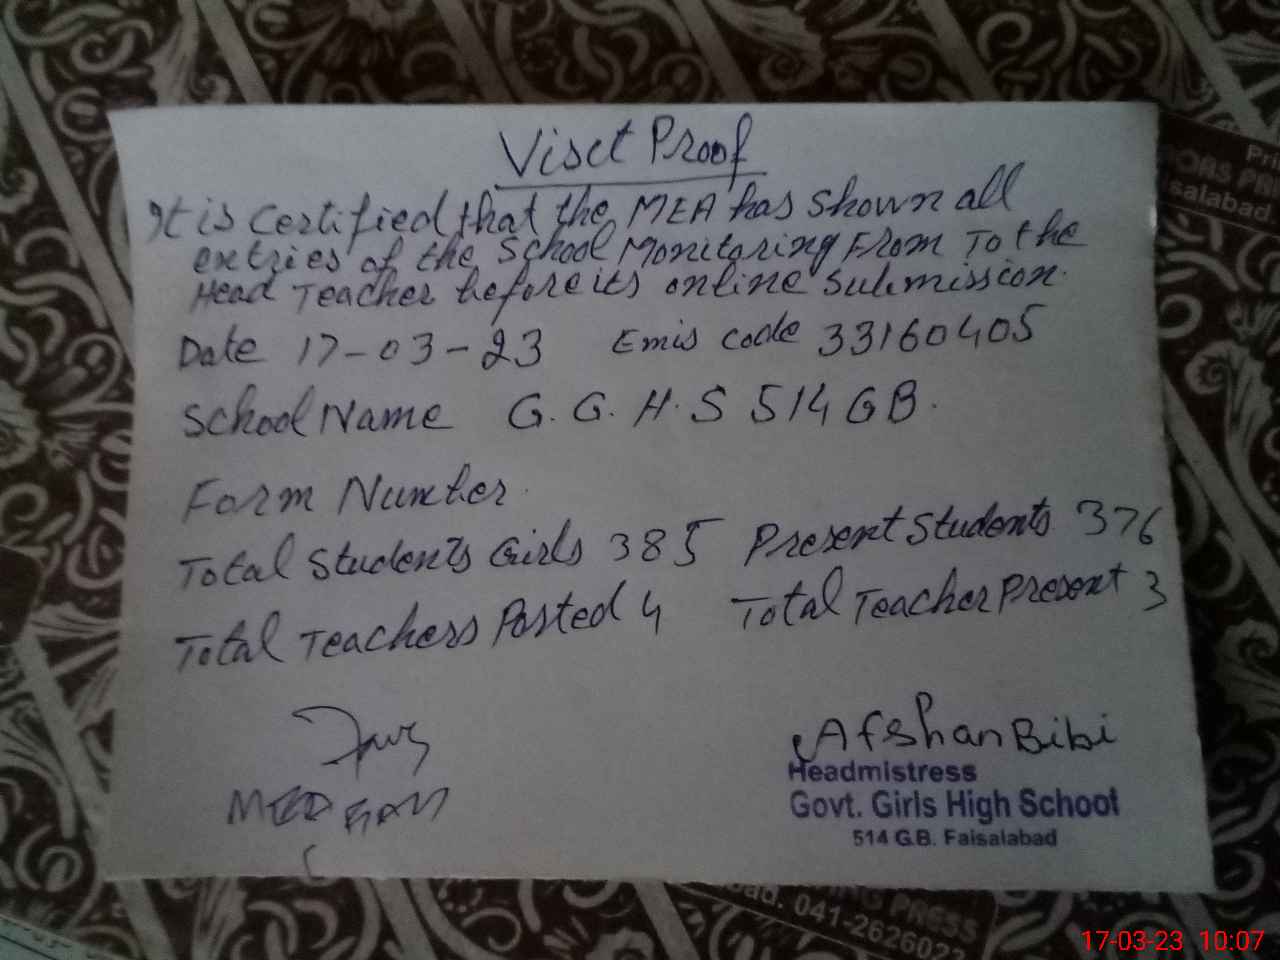 Visit Proof
It is Certified that the MEA has shown all
entries of the School Monitoring From To the
Head Teacher before its online submission.
Date 17-03-23 Emis code 33160405
School Name G. G. H. S 514 GB.
Form Number
Total Students Girls 385 Present Students 376
Total Teachers Posted 4 Total Teacher Present 3
Afshan Bibi
Headmistress
Govt. Girls High School
514 G.B. Faisalabad
PRESS
041-2626023
17-03-23 10:07